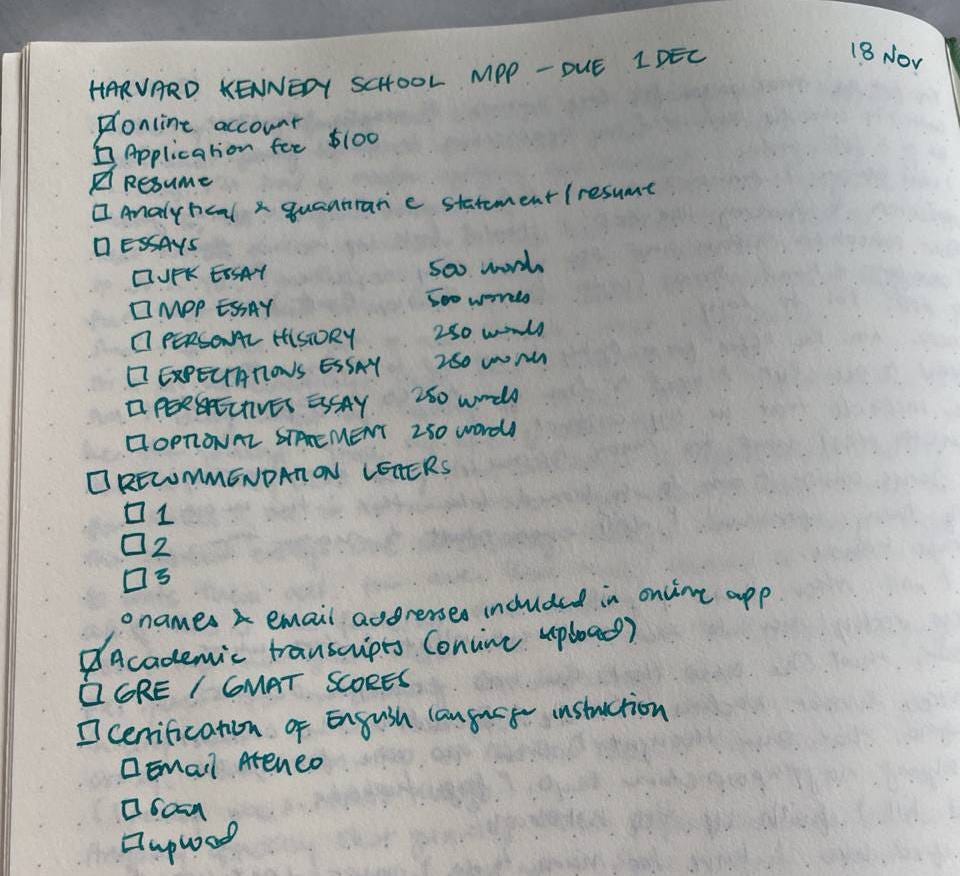 18 Nov
HARVARD KENNEDY SCHOOL MPP - DUE 1 DEC
online account
Application fee $100
RESUME
Analytical & quantitative statement/resume
ESSAYS
JFK ESSAY 500 words
MPP ESSAY 500 words
PERSONAL HISTORY 250 words
EXPECTATIONS ESSAY 250 words
PERSPECTIVES ESSAY 250 words
OPTIONAL STATEMENT 250 words
RECOMMENDATION LETTERS
1
2
3
names & email addresses included in online app
Academic transcripts (online upload)
GRE / GMAT SCORES
Certification of English language instruction
Email Ateneo
scan
upload